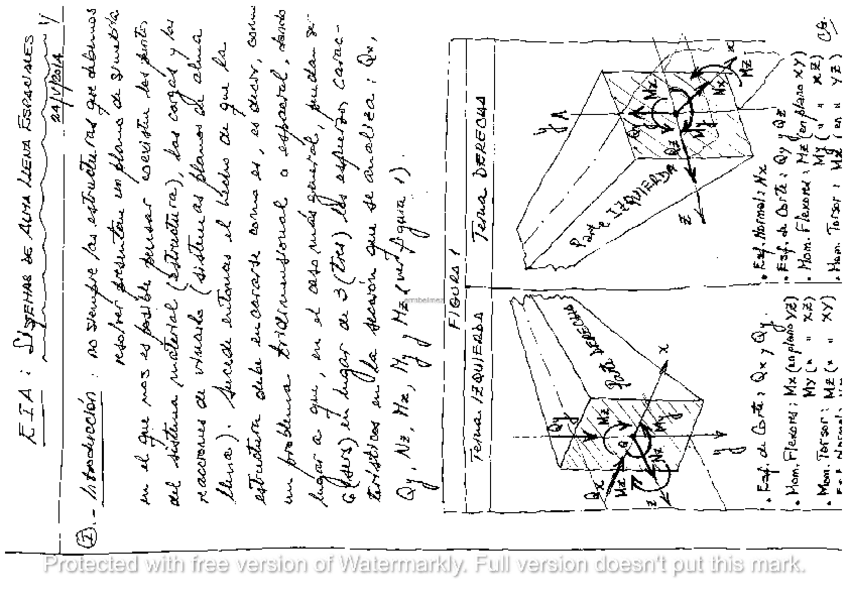 EIA: SISTEMAS DE ALMA LLENA ESPACIALES
24/V/2014
1/
I.- Introducción: no siempre las estructuras que debemos
resolver presentan un plano de simetría
en el que nos es posible pensar coexisten los puntos
del sistema material (estructura), las cargas y las
reacciones de vínculo (sistemas planos de alma
llena). Sucede entonces el hecho de que la
estructura debe encararse como es, es decir, como
un problema tridimensional o espacial, dando
lugar a que, en el caso más general, puedan ser
6 (seis) en lugar de 3 (tres) los esfuerzos carac-
terísticos en la sección que se analiza: Qx,
Qy, Nz, Mx, My y Mz (ver figura 1).
FIGURA 1
Terna IZQUIERDA
Terna DERECHA
Qy
Parte DERECHA
Mz
Qx
Mx
My
Nz
z
x
y
Parte IZQUIERDA
y
Qy
Mx
Qz
My
Nx
Mz
z
x
• Esf. de Corte: Qx y Qy.
• Mom. Flexores: Mx (en plano YZ)
My (" " XZ)
• Mom. Torsor: Mz (" " XY)
• Esf. Normal: Nz
• Esf. Normal: Nx
• Esf. de Corte: Qy y Qz
• Mom. Flexores: Mz (en plano XY)
My (" " XZ)
• Mom. Torsor: Mx (en " YZ)
CG.
Protected with free version of Watermarkly. Full version doesn't put this mark.